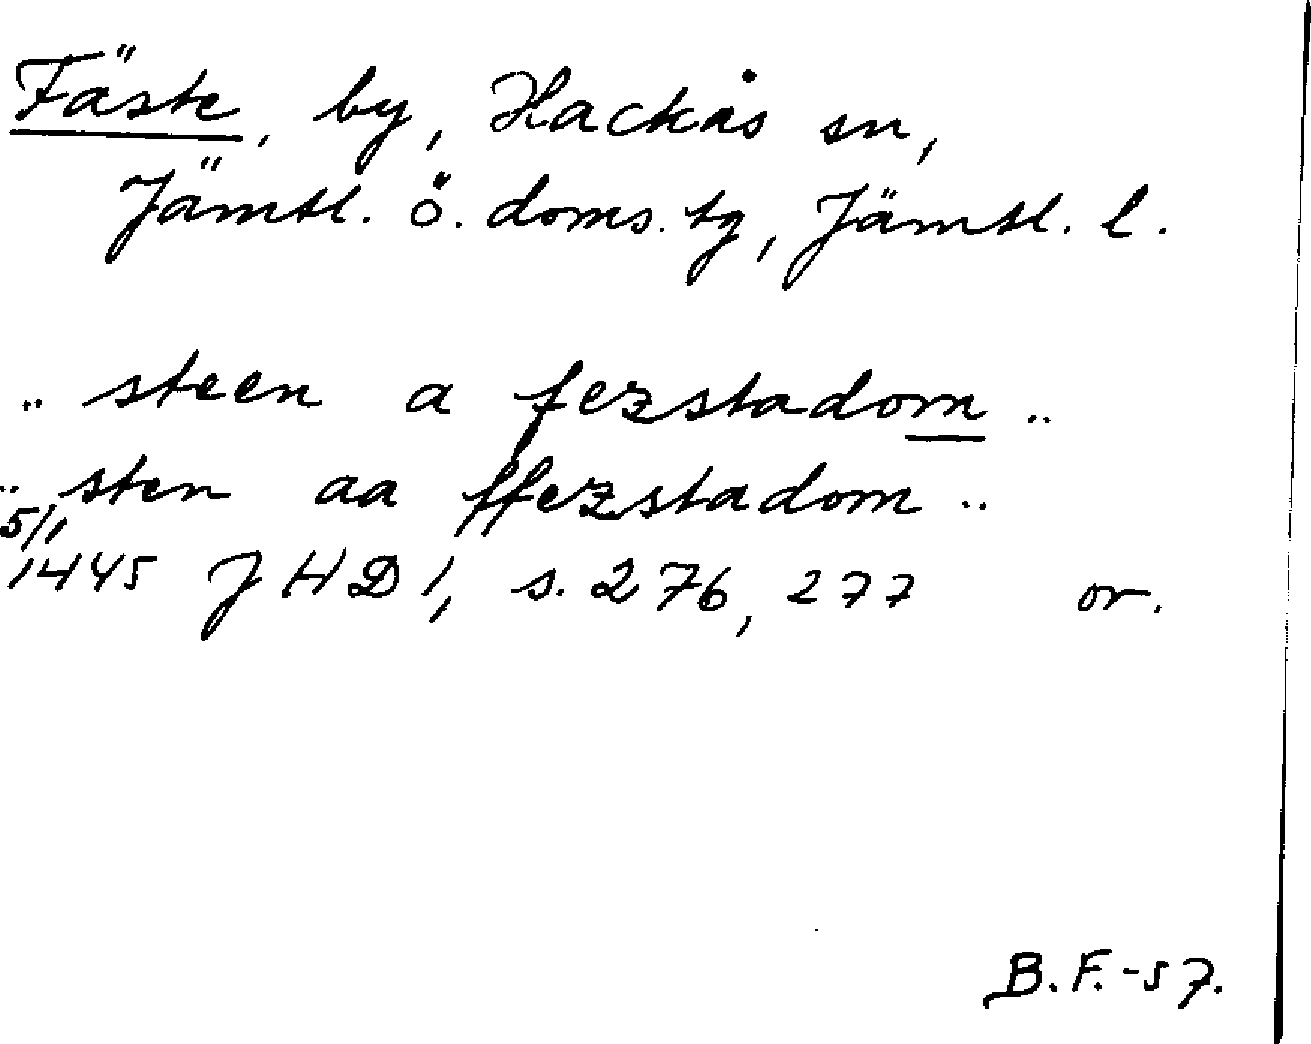 Fäste, by, Hackås sn,
Jämtl. ö. doms. tg, Jämtl. l.
.. steen a fezstadom ..
.. sten aa ffezstadom ..
5/1
1445 JHD 1, s. 276, 277 or.
B.F.-57.